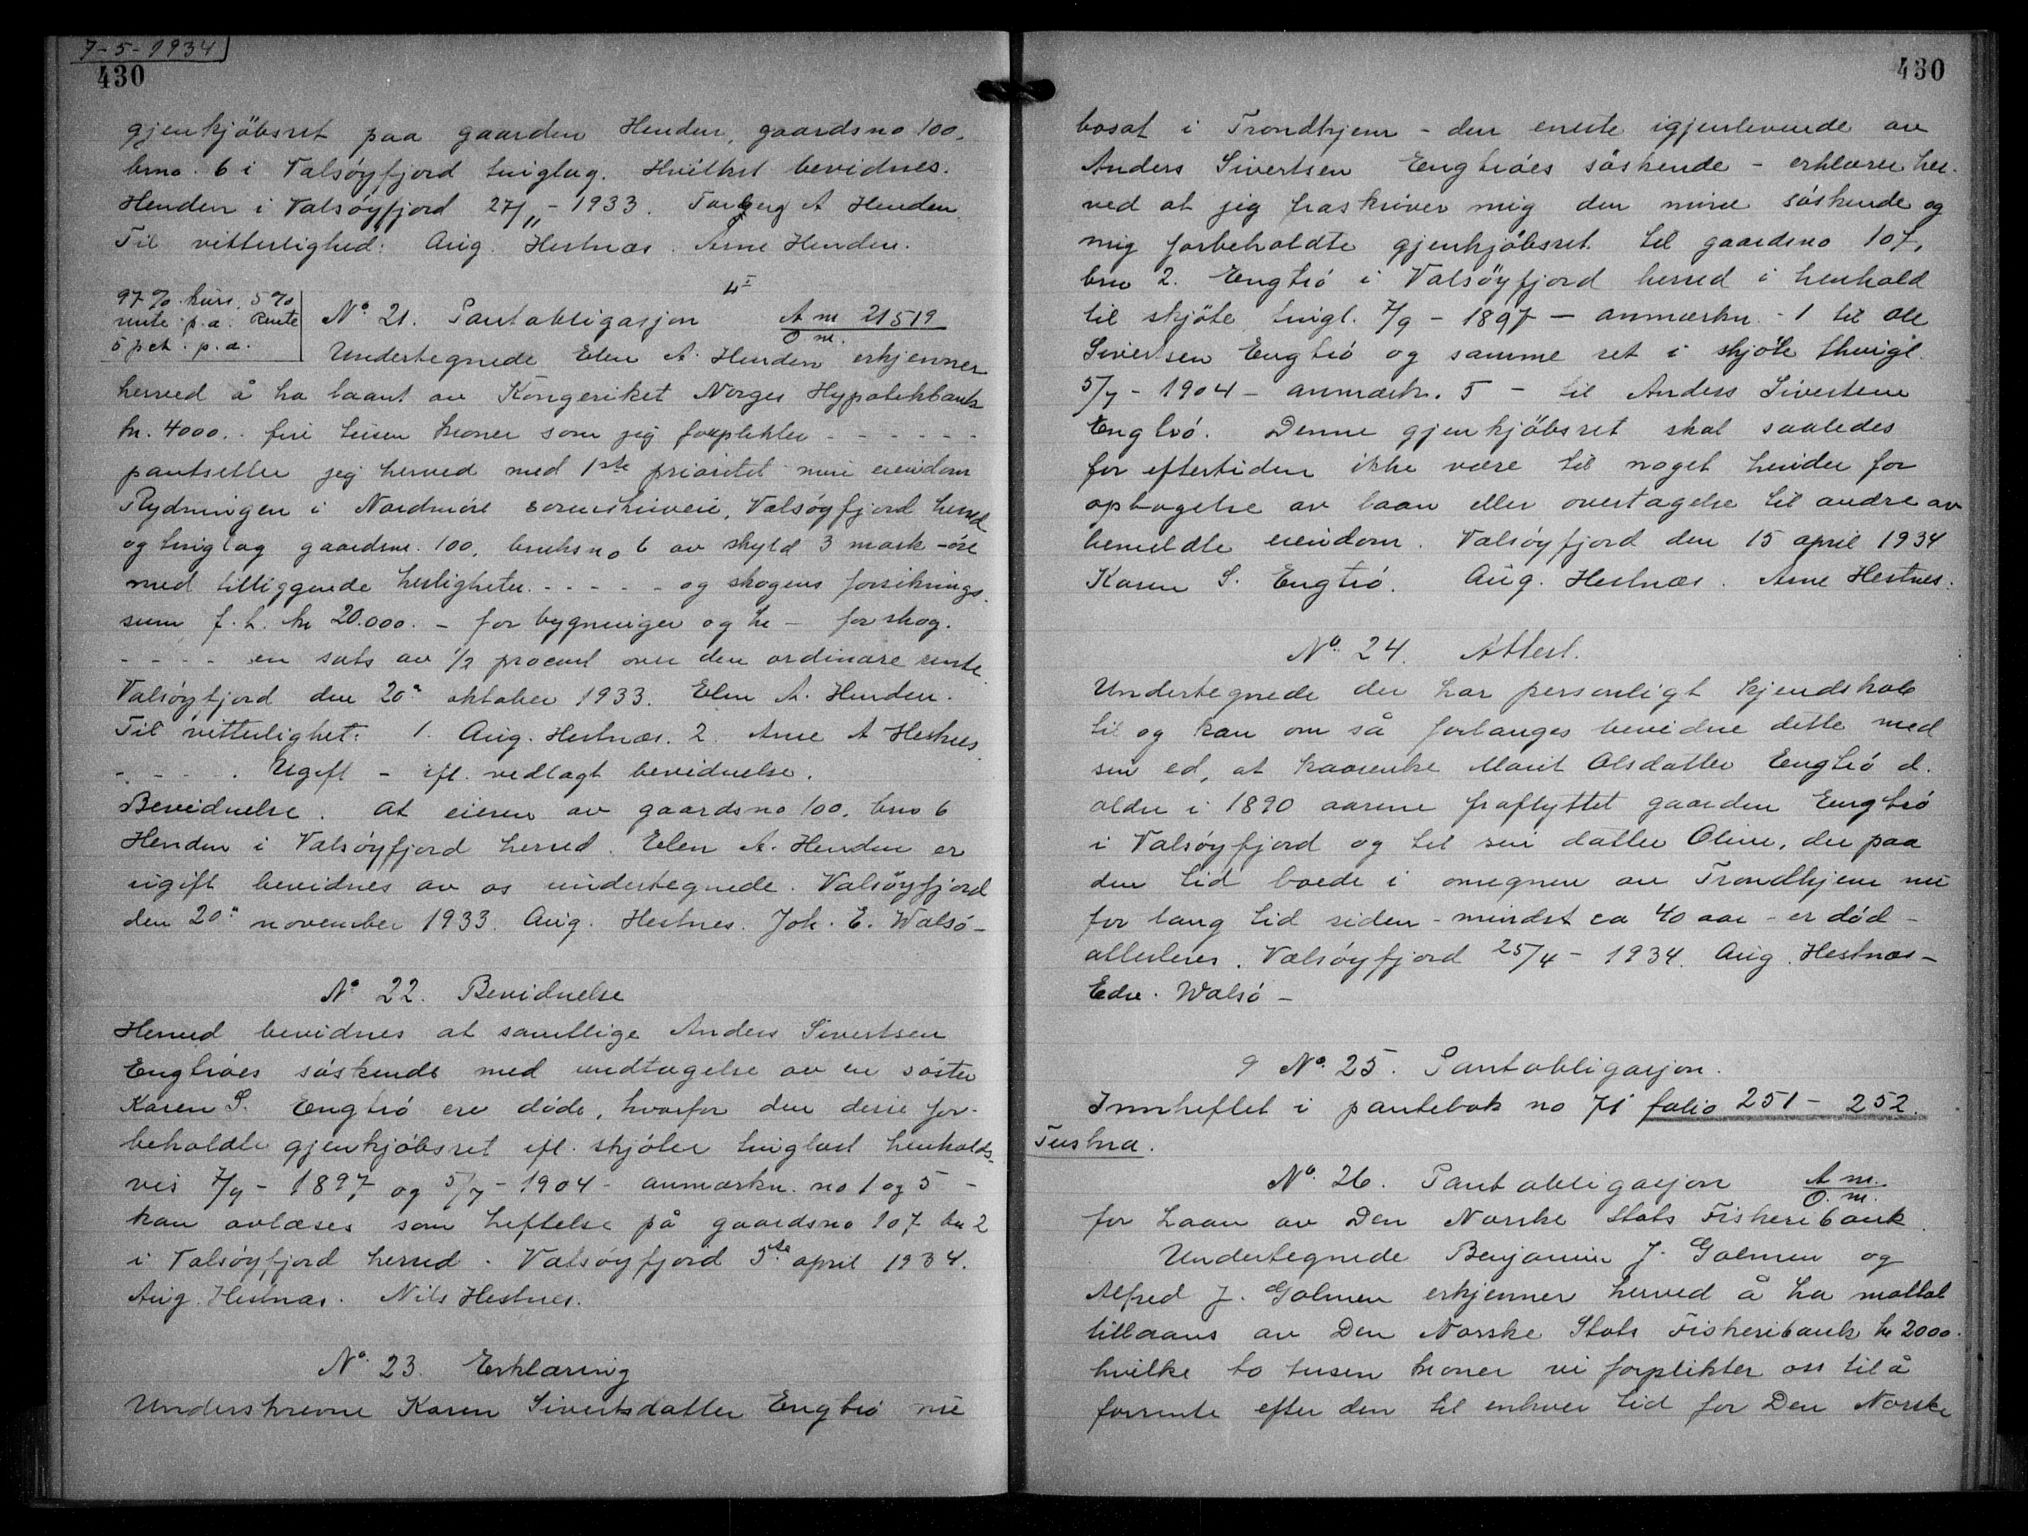 7-5-1934
430
gjenkjöbsret paa gaarden Henden, gaardsno 100,
brno. 6 i Valsöyfjord tinglag. Hvilket bevidnes.
Henden i Valsöyfjord 27/11 - 1933. Torberg A Henden.
Til vitterlighed: Aug. Hestnæs. Arne Henden.
4 I
97 % kurs. 5 %
rente p.a. Rente
5 pct. p.a.
No 21. Pantobligasjon A m 21519
O m.
Undertegnede Elen A. Henden erkjenner
herved å ha laant av Kongeriket Norges Hypotekbank
kr. 4000.- fire tusen kroner som jeg forplikter - - - - -
pantsetter jeg herved med 1ste prioritet min eiendom
Rydningen i Nordmöre sorenskriveri, Valsöyfjord herred
og tinglag gaardsnr. 100, bruksno 6 av skyld 3 mark - öre
med tilliggende herligheter. - - - - - og skogens forsikrings
sum f. t. kr 20.000. - for bygninger og kr - for skog.
- - - - en sats av 1/2 procent over den ordinære rente.
Valsöyfjord den 20de oktober 1933. Elen A. Henden.
Til vitterlighet: 1. Aug. Hestnæs. 2. Arne A Hestnes
- - - - . Ugift - efl. vedlagt bevidnelse.
Bevidnelse. At eieren av gaardsno 100. brno 6
Henden i Valsöyfjord herred. Elen A. Henden er
ugift bevidnes av os undertegnede. Valsöyfjord
den 20de november 1933. Aug. Hestnes. Joh. E. Walsö -
No 22. Bevidnelse
Herved bevidnes at samtlige Anders Sivertsen
Engtröes söskende med undtagelse av en söster
Karen S. Engtrö ere döde, hvorfor den disse for-
beholdte gjenkjöbsret efl. skjöter tinglæst henholds-
vis 7/9 - 1897 og 5/7 - 1904 - anmærkn. no 1 og 5 -
kan avlæses som heftelse på gaardsno 107 br 2
i Valsöyfjord herred. Valsöyfjord 5te april 1934.
Aug. Hestnæs. Nils Hestnes.
No 23. Erklæring
Underskrevne Karen Sivertsdatter Engtrö nu
430
bosat i Trondhjem - den eneste igjenlevende av
Anders Sivertsen Engtröes söskende - erklærer her-
ved at jeg fraskriver mig den mine söskende og
mig forbeholdte gjenkjöbsret til gaardsno 107,
brno 2. Engtrö i Valsöyfjord herred i henhold
til skjöte tingl. 7/9 - 1897 - anmærkn. - 1 til Ole
Sivertsen Engtrö og samme ret i skjöte thingl.
5/7 - 1904 - anmærk. 5 - til Anders Sivertsen
Engtrö. Denne gjenkjöbsret skal saaledes
for eftertiden ikke være til noget hinder for
optagelse av laan eller overtagelse til andre av
bemeldte eiendom. Valsöyfjord den 15 april 1934
Karen S. Engtrö. Aug. Hestnæs. Arne Hestnes.
No 24. Attest.
Undertegnede der har personligt kjendskab
til og kan om så forlanges bevidne dette med
sin ed, at kaarenke Marit Olsdatter Engtrö d.
ældre i 1890 aarene fraflyttet gaarden Engtrö
i Valsöyfjord og til sin datter Oline, der paa
den tid boede i omegnen av Trondhjem nu
for lang tid siden - mindst ca 40 aar - er död -
attesteres. Valsöyfjord 25/4 - 1934. Aug. Hestnæs -
Edv. Walsö -
9 No 25. Pantobligasjon.
Innheftet i pantebok no 71 folio 251 - 252.
Tustna.
No 26. Pantobligasjon A m.
O. m.
for laan av Den Norske Stats Fiskeribank.
Undertegnede Benjamin J. Golmen og
Alfred J. Golmen erkjenner herved å ha mottat
tillaans av Den Norske Stats Fiskeribank kr 2000.
hvilke to tusen kroner vi forplikter oss til å
forrente efter den til enhver tid for Den Norske